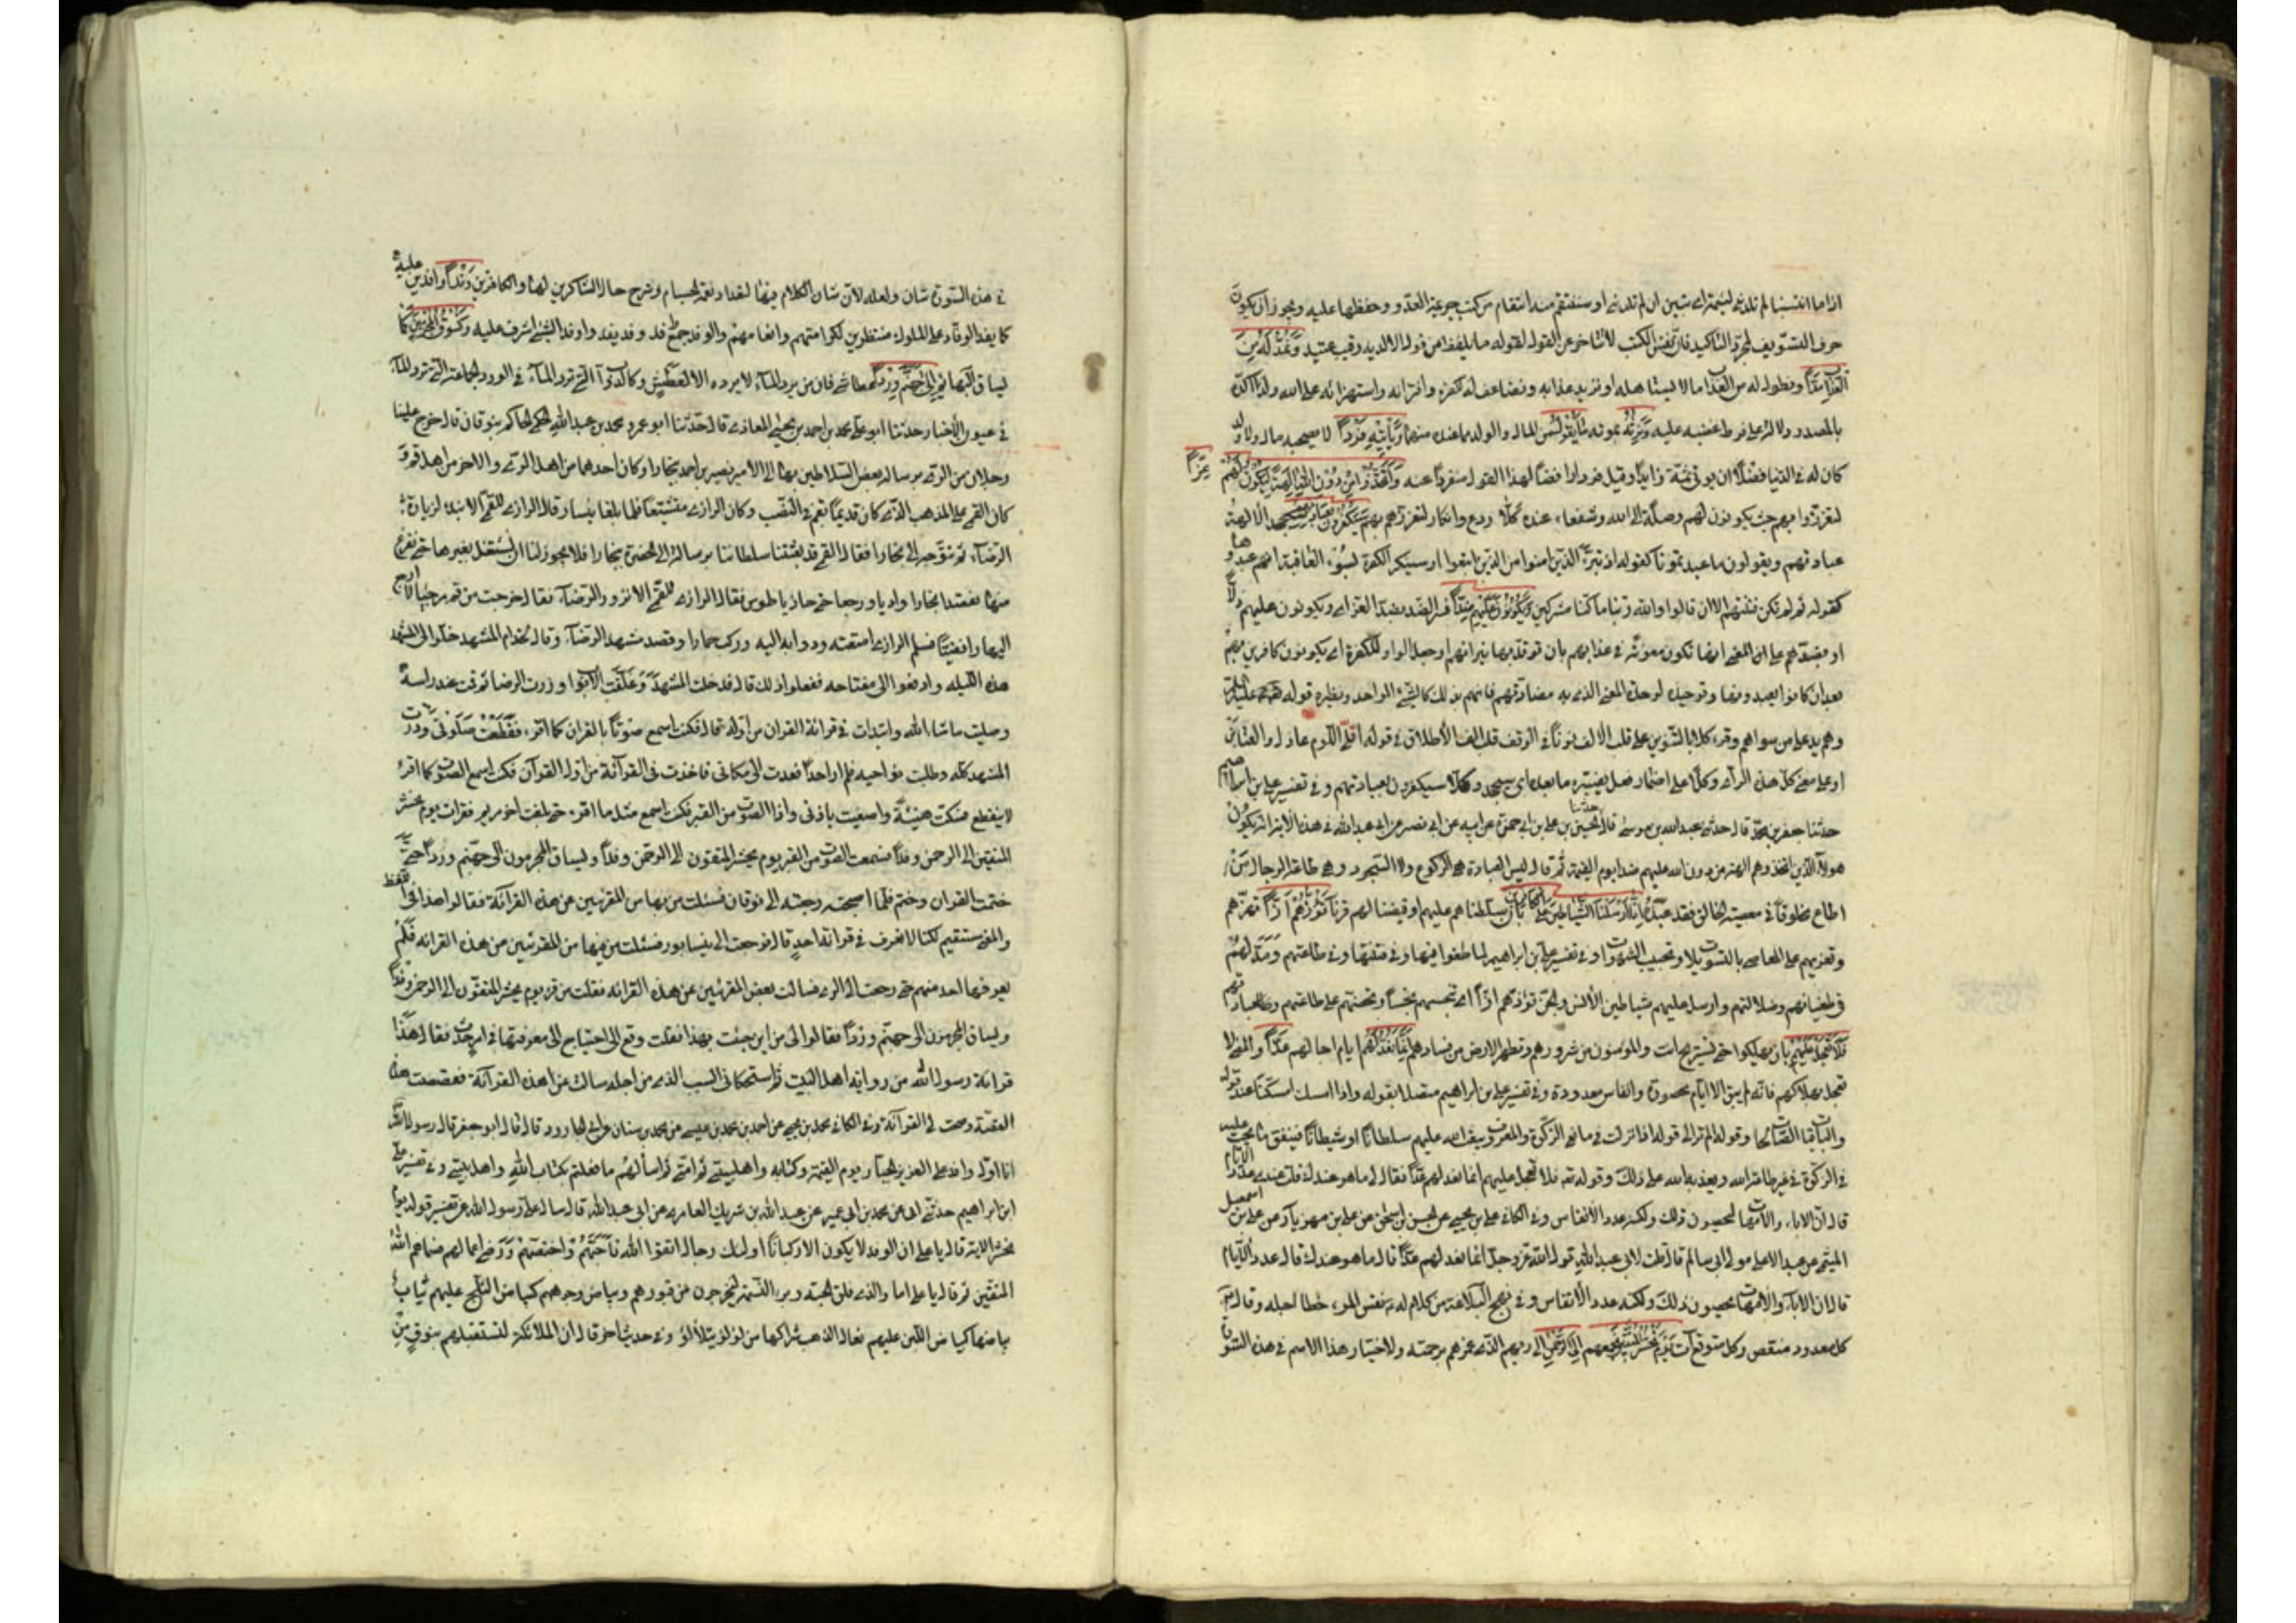 اذا ما انتسبنا لم تلدني لئيمة اي تبين ان لم تلدني او سننتقم منه انتقام من كتب جريمة العدو وحفظها عليه ويجوز ان يكون
حرف التسويف لمجرد التاكيد فان نفس الكتب لا تتاخر عن القول لقوله ما يلفظ من قول الا لديه رقيب عتيد وَنَمُدُّ لَهُ مِنَ
العَذابِ مَدّاً ونطول له من العذاب ما لا يستاهله او نزيد عذابه ونضاعف له كفره وافترائه واستهزائه على الله ولذا اكده
بالمصدر دلالة على فرط غضبه عليه وَنَرِثُهُ بموته مَا يَقُولُ يعني المال والولد مما عنده منهما وَيَأتينا فَرْداً لا يصحبه مال ولا ولد
كان له في الدنيا فضلا ان يوتى ثمة زايدا وقيل فردا رافضا لهذا القول منفردا عنه وَاتَّخَذُوا مِنْ دُونِ اللهِ آلِهَةً لِيَكُونُوا لَهُمْ عِزّاً
ليتعززوا بهم حيث يكونون لهم وصلة الى الله وشفعاء عنده كَلّا ردع وانكار لتعززهم بهم سَيَكْفُرُونَ بِعِبادَتِهِمْ سيجحد الالهة
عبادتهم ويقولون ما عبدتمونا كقوله اذ تبرأ الذين اتبعوا من الذين اتبعوا او سينكر الكفرة لسوء العاقبة انهم عبدوها
كقوله ثم لم تكن فتنتهم الا ان قالوا والله ربنا ما كنا مشركين وَيَكُونُونَ عَلَيْهِمْ ضِدّاً فسر الضد بضد العز اي ويكونون عليهم ذلا
او بضدهم على معنى انها تكون معونة في عذابهم بان توقد بها نيرانهم او جعل الواو للكفرة اي يكونون كافرين بهم
بعد ان كانوا يعبدونها وتوحيده لوحدة المعنى الذي به مضادتهم فانهم بذلك كالشيء الواحد ونظيره قوله عليه السلم
وهم يد على من سواهم وقرء كلا بالتنوين على قلب الالف نونا في الوقف قلب الف الاطلاق في قوله اقلّي اللوم عاذل والعتابن
او على معنى كل هذا الراي كلا وكلا على اضمار فعل يفسره ما بعده اي سيجحدون كلا سيكفرون بعبادتهم وفي تفسير علي بن ابراهيم
حدثنا جعفر بن احمد قال حدثني عبد الله بن موسى قال حدثنا الحسن بن علي بن ابي حمزة عن ابيه عن ابي بصير عن ابي عبد الله في هذه الاية اي يكون
هولاء الذين اتخذوهم الهة من دون الله عليهم ضدا يوم القيمة ثم قال ليس العبادة هي الركوع ولا السجود وهي طاعة الرجال مَنْ
اطاع مخلوقا في معصية الخالق فقد عبده اَنّا اَرْسَلْنَا الشَّياطينَ عَلَى الكافِرينَ بان سلطناهم عليهم او قيضنا لهم قرناء تَؤُزُّهُمْ اَزّاً تهزهم
وتغريهم على المعاصي بالتسويلات وتحبيب الشهوات وفي تفسير علي بن ابراهيم لما طغوا فيها وفي فتنتها وفي طاعتهم وَمَدَّ لَهُمْ
في طغيانهم وضلالتهم وارسل عليهم شياطين الانس والجن تؤزهم ازا اي تنخسهم نخسا وتحضهم على طاعتهم وعبادتهم
فَلا تَعْجَلْ عَلَيْهِمْ بان يهلكوا حتى تستريح انت والمؤمنون من شرورهم وتطهر الارض من فسادهم اِنَّما نَعُدُّ لَهُمْ ايام اجالهم عَدّاً والمعنى لا
تعجل بهلاكهم فانه لم يبق الا ايام محصورة وانفاس معدودة وفي تفسير علي بن ابراهيم متصلا بقوله واذا امسك امسكنا عنه قوله
والباقيات الصالحات وقوله الم تر الى قوله ازا نزلت في مانعي الزكوة والمعروف يبعث الله عليهم سلطانا او شيطانا فينفق ما يجب عليه
في الزكوة في غير طاعة الله ويعذبه الله على ذلك وقوله تع فلا تعجل عليهم انما نعد لهم عدا فقال لي ما هو عندك قلت عدد الايام
قال ان الاباء والامهات ليحصون ذلك ولكنه عدد الانفاس وفي الكافي علي بن يحيى عن الحسن بن اسحق عن علي بن مهزيار عن علي بن اسمعيل
الميثمي عن عبد الاعلى مولى ال سالم قال قلت لابي عبد الله قول الله عز وجل انما نعد لهم عدا قال ما هو عندك قال عدد الايام
قال ان الاباء والامهات يحصون ذلك ولكنه عدد الانفاس وفي نهج البلاغة من كلام له نفس المرء خطاه الى اجله وقال
كل معدود منقص وكل متوقع آت يَوْمَ نَحْشُرُ المُتَّقينَ نجمعهم اِلَى الرَّحْمنِ الى ربهم الذي غمرهم برحمته ولاختيار هذا الاسم في هذه السورة
في هذه السورة شان ولعله لان شان الكلام فيها لتعداد نعمه الجسام وشرح حال الشاكرين لها والكافرين وَفْداً وافدين عليه
كما يفد الوفاد على الملوك منتظرين لكرامتهم وانعامهم والوفد جمع وفد وفد يفد واوفد الشيء اشرف عليه وَنَسُوقُ المُجْرِمينَ كما
يساق البهائم اِلى جَهَنَّمَ وِرْداً عطاشى فان من يرد الماء لا يرده الا لعطش وكالدواب التي ترد الماء في الورد الجماعة التي ترد الماء
في عيون الأخبار حدثنا ابو علي محمد بن احمد بن يحيى المعاذي قال حدثنا ابو عمرو محمد بن عبد الله الحكمي الحاكم بنوقان قال خرج علينا
رجلان من الري برسالة بعض السلاطين بها الى الامير نصر بن احمد ببخارا وكان احدهما من اهل الري والاخر من اهل قم وَ
كان القمي على المذهب الذي كان قديما بقم في النصب وكان الرازي متشيعا فلما بلغا نيسابور قال الرازي للقمي الا نبدا لزيارة
الرضا ثم نتوجه الى بخارا فقال القمي قد بعثنا سلطاننا برسالة الى الحضرة ببخارا فلا يجوز لنا ان نشتغل بغيرها حتى نفرغ
منها فقصدا بخارا واديا ورجعا حتى حاذيا طوس فقال الرازي للقمي الا تزور الرضا فقال خرجت من قم مرجيا لا ارجع
اليها رافضيا فسلم الرازي امتعته ودوابه اليه وركب حمارا وقصد مشهد الرضا وقال لخدام المشهد خلوا لي المشهد
هذه الليلة وادفعوا الي مفتاحه ففعلوا ذلك قال فدخلت المشهد وَغلقت الابواب وزرت الرضا ثم قمت عند راسه
وصليت ما شاء الله وابتدات في قرائة القران من اوله قال فكنت اسمع صوتا بالقران كما اقرء فقَطَعْت صَلوتى وَدرت
المشهد كله وطلبت نواحيه فلم ار احدا فعدت الى مكاني فاخذت في القرآئة من اول القرآن فكنت اسمع الصوت كما اقرء
لا ينقطع فسكت هنيئة واصغيت باذني واذا الصوت من القبر فكنت اسمع مثل ما اقرء حتى بلغت اخر مريم فقرات يوم نحشر
المتقين الى الرحمن وفدا فسمعت الصوت من القبر يوم يحشر المتقون الى الرحمن وفدا ويساق المجرمون الى جهنم وردا حتى
ختمت القران وختم فلما اصبحت رجعت الى نوقان فسئلت من بها من المقرئين عن هذه القرائة فقالوا هذا في اللفظ
والمعنى مستقيم لكنا لا نعرف في قرائة احد قال فرجعت الى نيسابور فسئلت من فيها من المقرئين عن هذه القرائة فَلَمْ
يعرفها احد منهم حتى رجعت الى الري فسالت بعض المقرئين عن هذه القرائة فقلت من قرء يوم يحشر المتقون الى الرحمن وفدا
ويساق المجرمون الى جهنم وردا فقالوا لي من اين جئت بهذا فقلت وقع لي احتياج الى معرفتها في امر حدث فقال هذا
قرائة رسول الله من رواية اهل البيت ثم استحكاني السبب الذي من اجله سالت عن هذه القرآئة فقصصت هذه
القصة وصحت لي القرآئة وفي الكافي محمد بن يحيى عن احمد بن محمد بن عيسى عن محمد بن سنان عن ابي الجارود قال قال ابو جعفر قال رسول الله
انا اول وافد على العزيز الجبار يوم القيمة وكتابه واهل بيتي ثم امتي ثم اسألهُم ما فعلتم بكتاب الله واهل بيتي وفي تفسير علي
ابن ابراهيم حدثني ابي عن محمد بن ابي عمير عن عبد الله بن شريك العامري عن ابي عبد الله قال سال علي رسول الله عن تفسير قوله يوم
نحشر الاية قال يا علي ان الوفد لا يكون الا ركبانا اولئك رجال اتقوا الله فاَحَبَّهُمْ وَاختصهُمْ وَرَضي اعمالهم فسماهم الله
المتقين ثم قال يا علي اما والذي فلق الحبة وبرء النسمة ليخرجون من قبورهم وبياض وجوههم كبياض الثلج عليهم ثياب
بياضها كبياض اللبن عليهم نعال الذهب شراكها من لؤلؤ يتلألؤ وفي حديث اخر قال ان الملائكة لتستقبلهم بنوق مِنْ